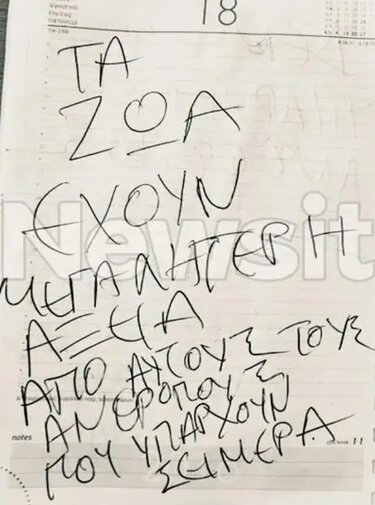 Vendredi
Freitag
ΠΑΡΑΣΚΕΥΗ
18
ΤΑ
ΖΩΑ
ΕΧΟΥΝ
ΜΕΓΑΛΗΤΕΡΗ
ΑΞΕΙΑ
ΑΠΟ ΑΥΤΟΥΣ ΤΟΥΣ
ΑΝΘΡΟΠΟΥΣ
ΠΟΥ ΥΠΑΡΧΟΥΝ
ΣΕΙΜΕΡΑ
Newsit
notes